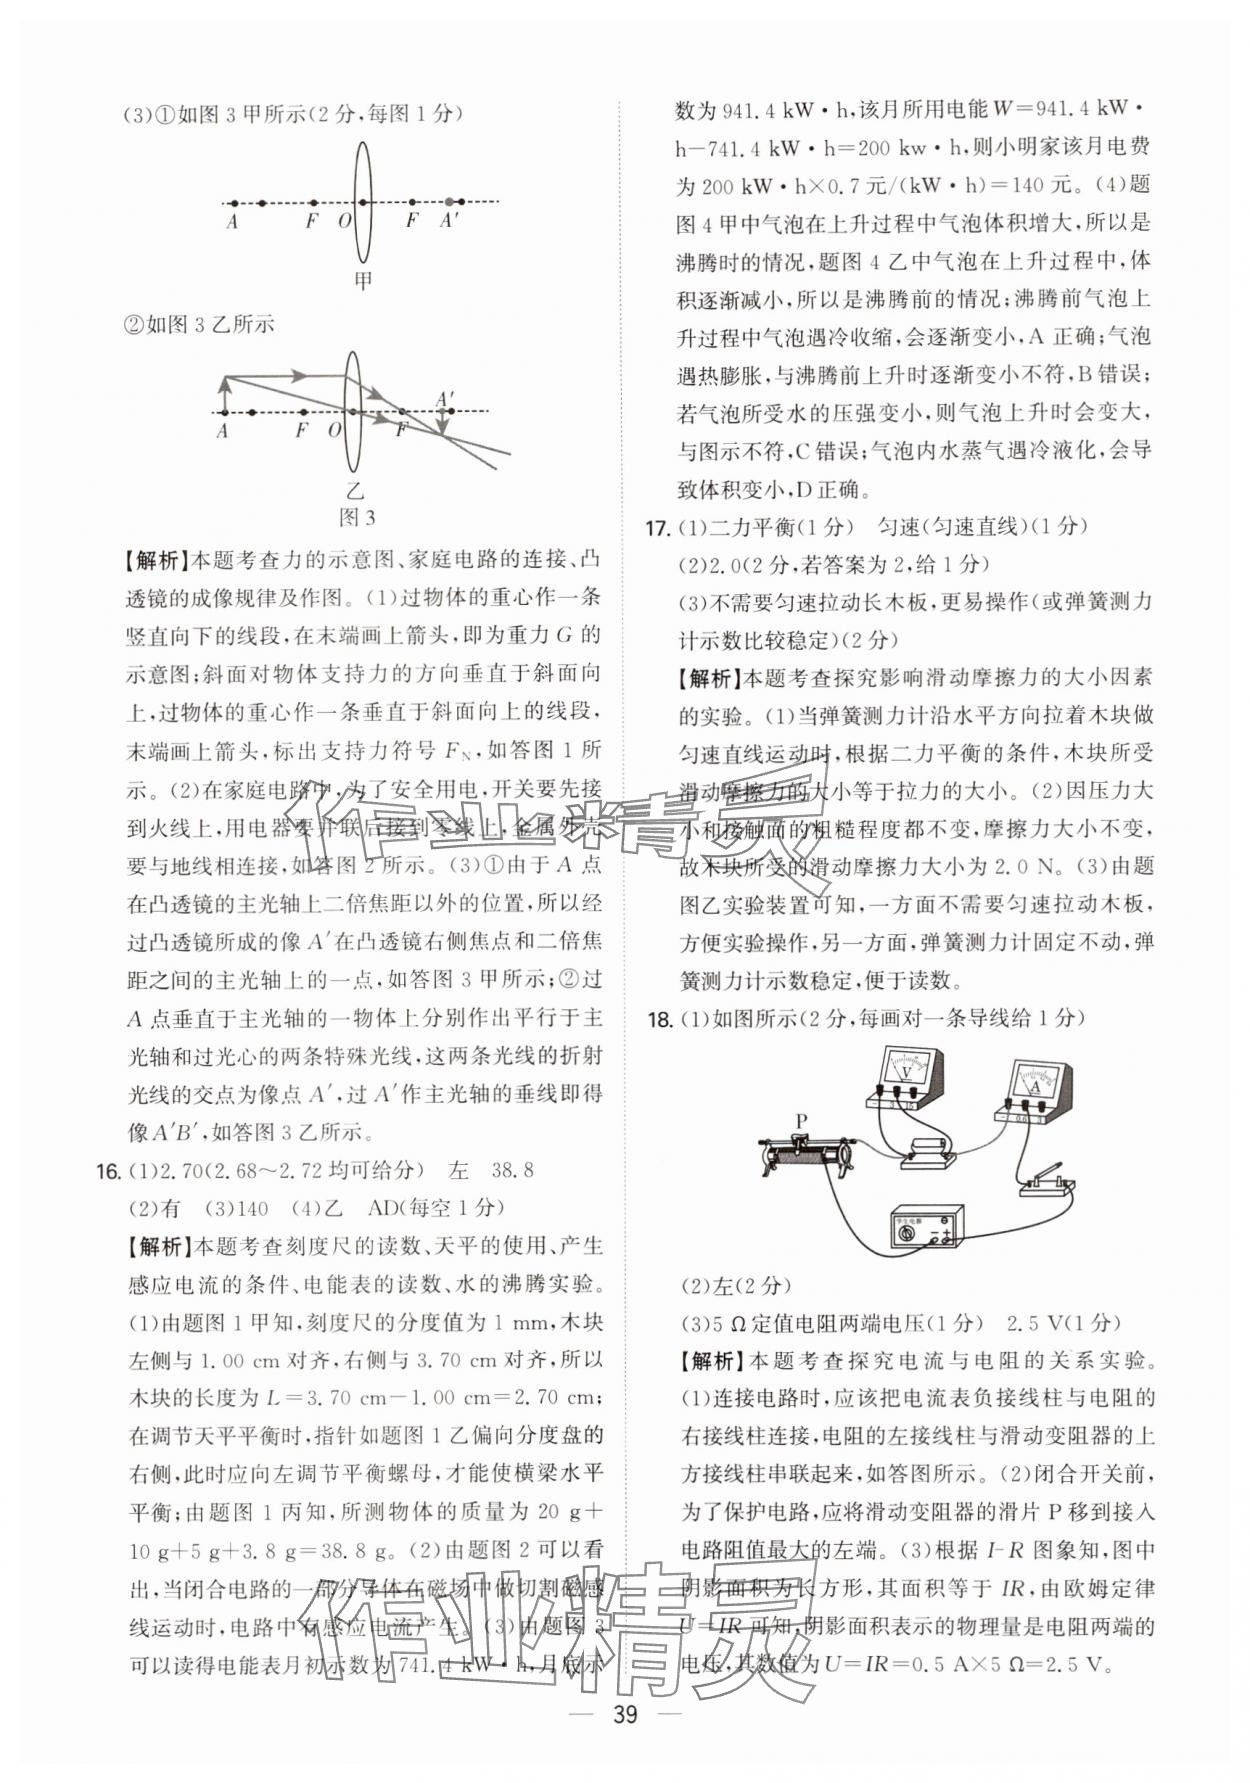 (3)①如图3甲所示(2分,每图1分)
A F O F A′
甲
②如图3乙所示
A F O F A′
乙
图3
【解析】本题考查力的示意图、家庭电路的连接、凸
透镜的成像规律及作图。(1)过物体的重心作一条
竖直向下的线段,在末端画上箭头,即为重力G的
示意图;斜面对物体支持力的方向垂直于斜面向
上,过物体的重心作一条垂直于斜面向上的线段,
末端画上箭头,标出支持力符号F_N,如答图1所
示。(2)在家庭电路中,为了安全用电,开关要先接
到火线上,用电器要并联后接到零线上,金属外壳
要与地线相连接,如答图2所示。(3)①由于A点
在凸透镜的主光轴上二倍焦距以外的位置,所以经
过凸透镜所成的像A′在凸透镜右侧焦点和二倍焦
距之间的主光轴上的一点,如答图3甲所示;②过
A点垂直于主光轴的一物体上分别作出平行于主
光轴和过光心的两条特殊光线,这两条光线的折射
光线的交点为像点A′,过A′作主光轴的垂线即得
像A′B′,如答图3乙所示。
16. (1)2.70(2.68~2.72均可给分) 左 38.8
(2)有 (3)140 (4)乙 AD(每空1分)
【解析】本题考查刻度尺的读数、天平的使用、产生
感应电流的条件、电能表的读数、水的沸腾实验。
(1)由题图1甲知,刻度尺的分度值为1 mm,木块
左侧与1.00 cm对齐,右侧与3.70 cm对齐,所以
木块的长度为L=3.70 cm-1.00 cm=2.70 cm;
在调节天平平衡时,指针如题图1乙偏向分度盘的
右侧,此时应向左调节平衡螺母,才能使横梁水平
平衡;由题图1丙知,所测物体的质量为20 g+
10 g+5 g+3.8 g=38.8 g。(2)由题图2可以看
出,当闭合电路的一部分导体在磁场中做切割磁感
线运动时,电路中有感应电流产生。(3)由题图3
可以读得电能表月初示数为741.4 kW·h,月底示
数为941.4 kW·h,该月所用电能W=941.4 kW·
h-741.4 kW·h=200 kw·h,则小明家该月电费
为200 kW·h×0.7元/(kW·h)=140元。(4)题
图4甲中气泡在上升过程中气泡体积增大,所以是
沸腾时的情况,题图4乙中气泡在上升过程中,体
积逐渐减小,所以是沸腾前的情况;沸腾前气泡上
升过程中气泡遇冷收缩,会逐渐变小,A正确;气泡
遇热膨胀,与沸腾前上升时逐渐变小不符,B错误;
若气泡所受水的压强变小,则气泡上升时会变大,
与图示不符,C错误;气泡内水蒸气遇冷液化,会导
致体积变小,D正确。
17. (1)二力平衡(1分) 匀速(匀速直线)(1分)
(2)2.0(2分,若答案为2,给1分)
(3)不需要匀速拉动长木板,更易操作(或弹簧测力
计示数比较稳定)(2分)
【解析】本题考查探究影响滑动摩擦力的大小因素
的实验。(1)当弹簧测力计沿水平方向拉着木块做
匀速直线运动时,根据二力平衡的条件,木块所受
滑动摩擦力的大小等于拉力的大小。(2)因压力大
小和接触面的粗糙程度都不变,摩擦力大小不变,
故木块所受的滑动摩擦力大小为2.0 N。(3)由题
图乙实验装置可知,一方面不需要匀速拉动木板,
方便实验操作,另一方面,弹簧测力计固定不动,弹
簧测力计示数稳定,便于读数。
18. (1)如图所示(2分,每画对一条导线给1分)
V
- 3 15
A
- 0.6 3
P
学生电源
- +
(2)左(2分)
(3)5 Ω定值电阻两端电压(1分) 2.5 V(1分)
【解析】本题考查探究电流与电阻的关系实验。
(1)连接电路时,应该把电流表负接线柱与电阻的
右接线柱连接,电阻的左接线柱与滑动变阻器的上
方接线柱串联起来,如答图所示。(2)闭合开关前,
为了保护电路,应将滑动变阻器的滑片P移到接入
电路阻值最大的左端。(3)根据I-R图象知,图中
阴影面积为长方形,其面积等于IR,由欧姆定律
U=IR可知,阴影面积表示的物理量是电阻两端的
电压,其数值为U=IR=0.5 A×5 Ω=2.5 V。
作业精灵
作业精灵
39